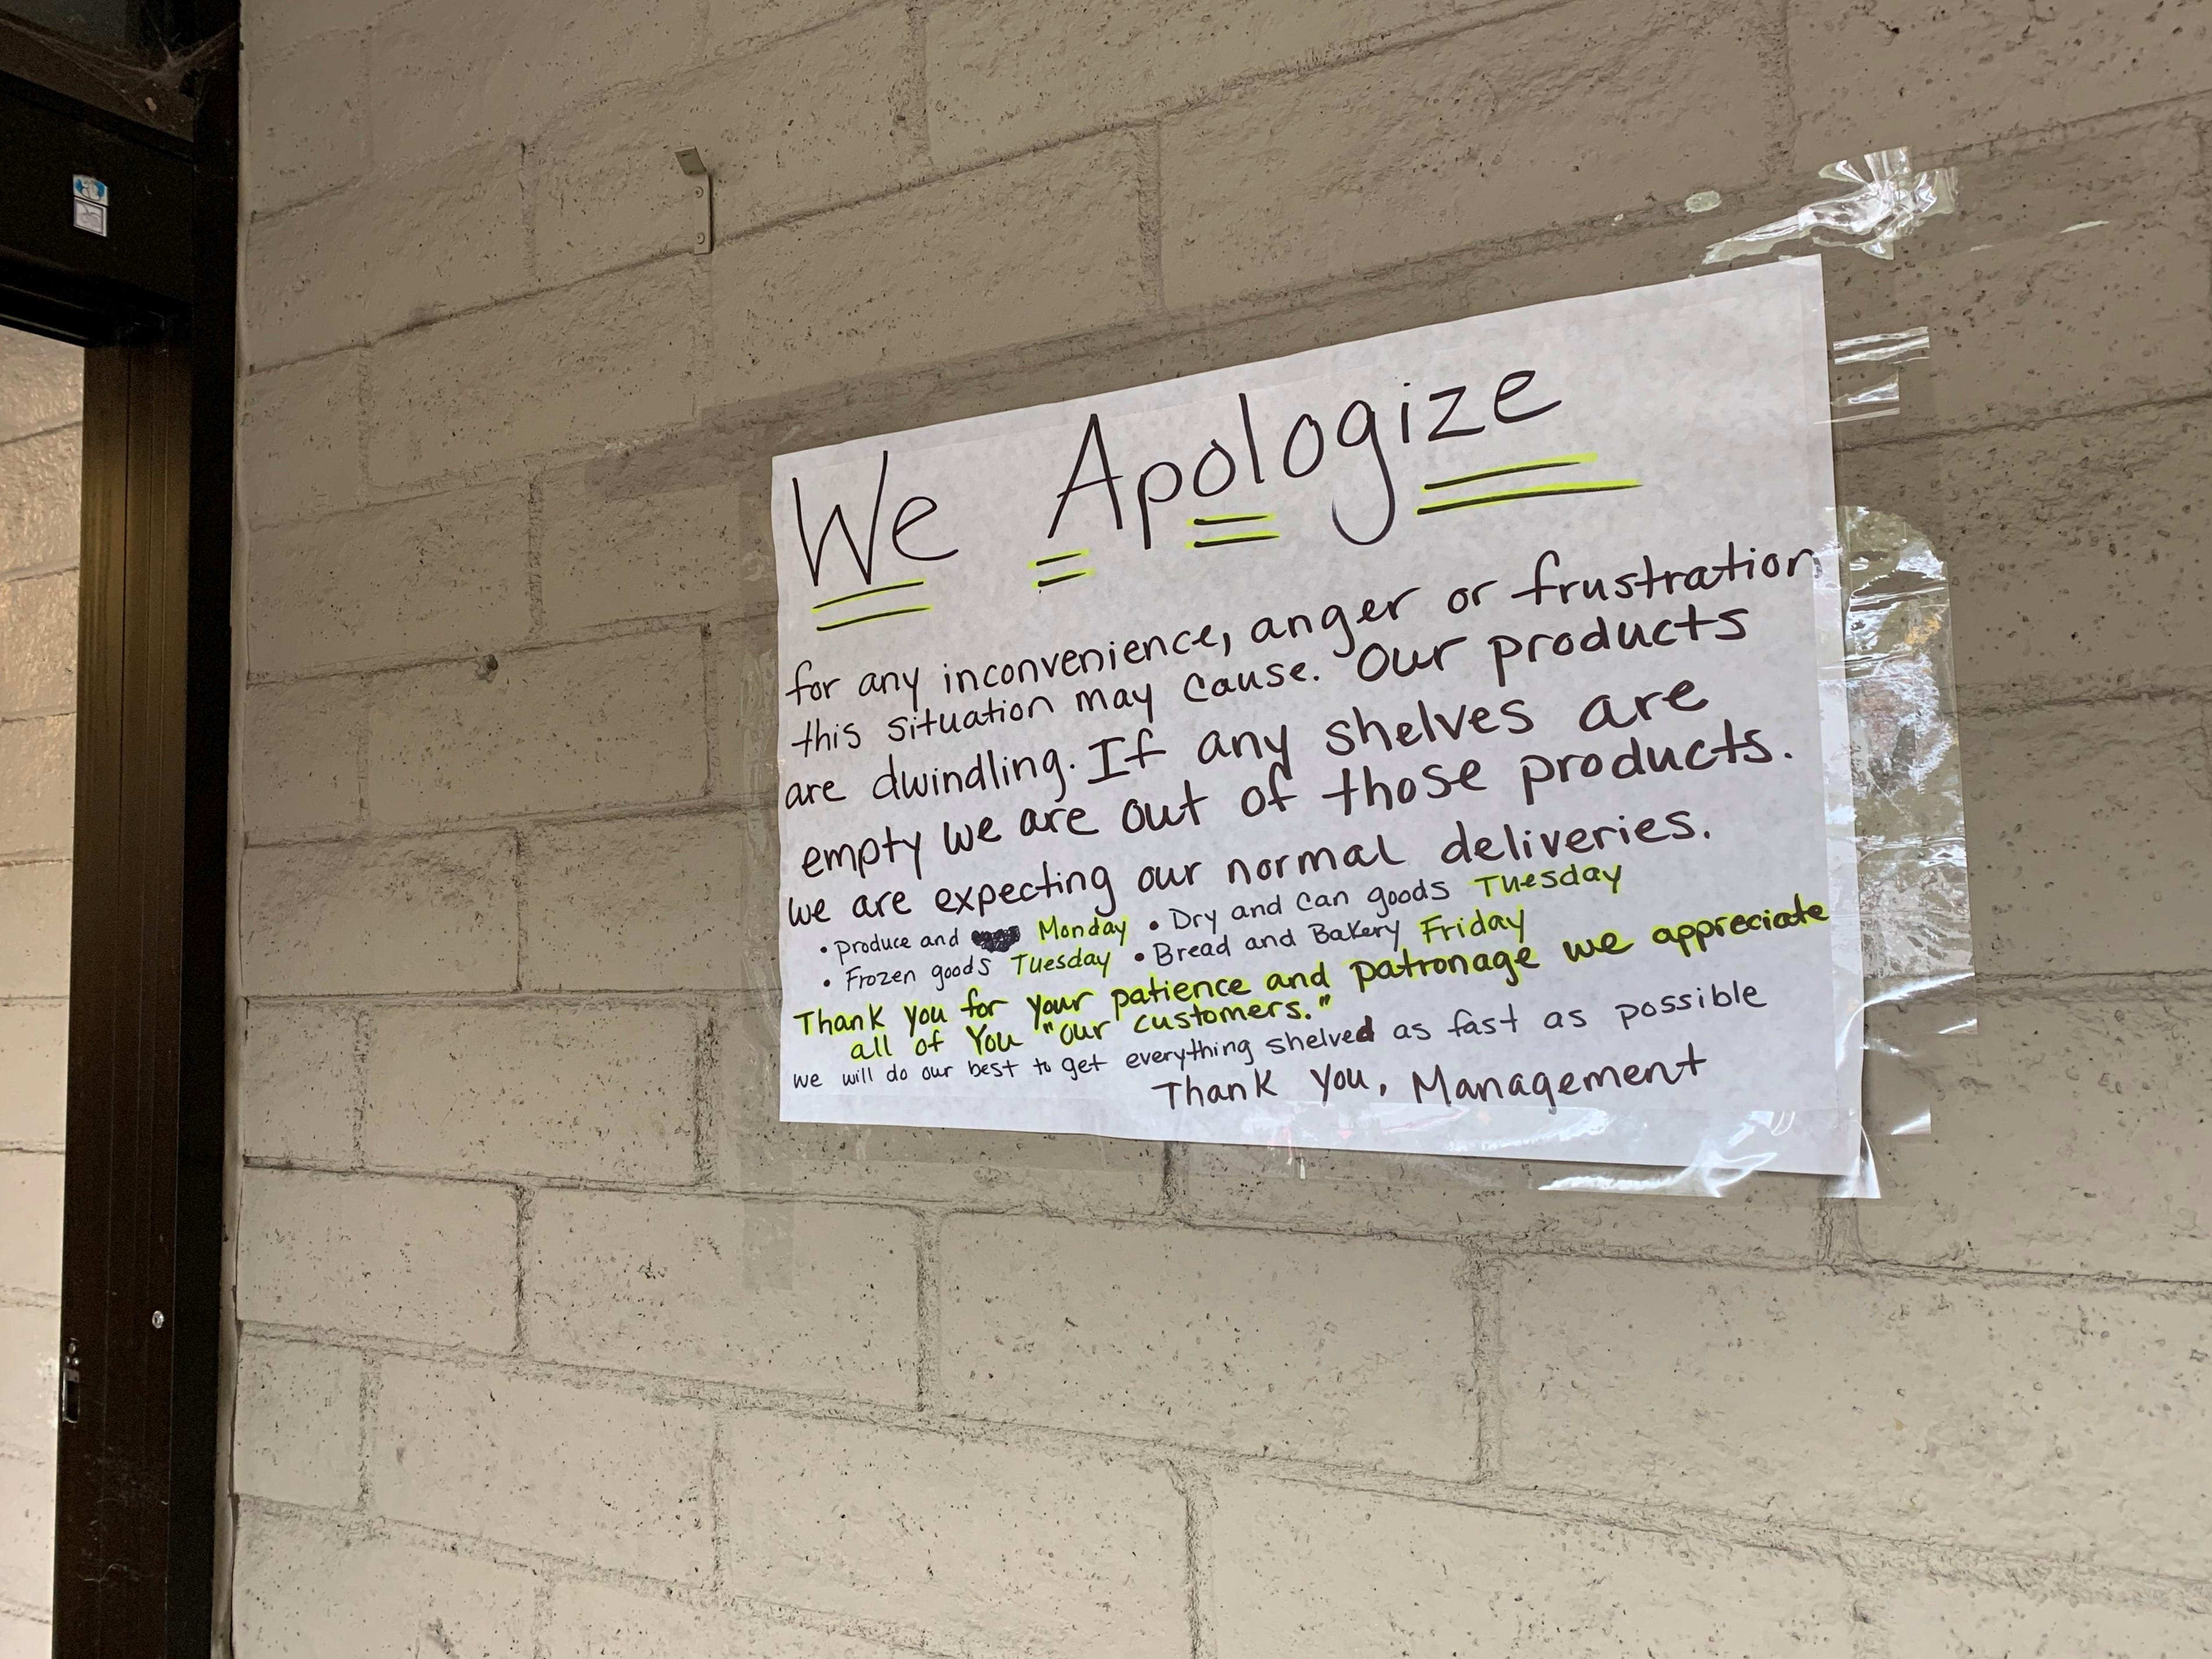 We Apologize
for any inconvenience, anger or frustration
this situation may cause. Our products
are dwindling. If any shelves are
empty we are out of those products.
we are expecting our normal deliveries.
• Produce and Monday • Dry and Can goods Tuesday
• Frozen goods Tuesday • Bread and Bakery Friday
Thank you for your patience and patronage we appreciate
all of You "our customers."
we will do our best to get everything shelved as fast as possible
Thank You, Management